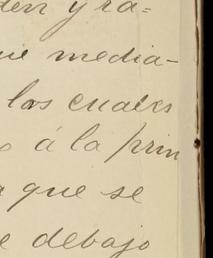 den y ra=
que media-
los cuales
á la prin
que se
debajo